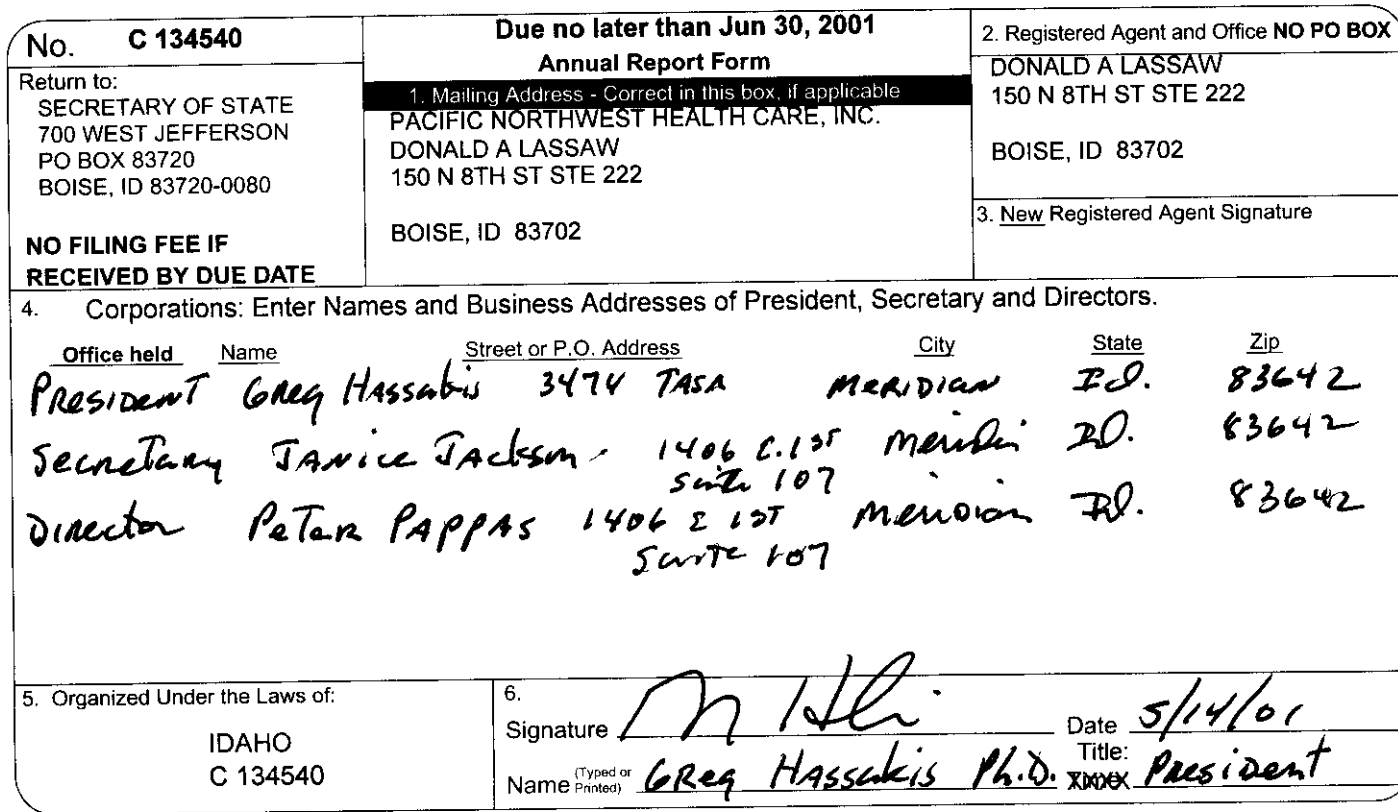 No. C 134540
Return to:
SECRETARY OF STATE
700 WEST JEFFERSON
PO BOX 83720
BOISE, ID 83720-0080
NO FILING FEE IF
RECEIVED BY DUE DATE
Due no later than Jun 30, 2001
Annual Report Form
1. Mailing Address - Correct in this box, if applicable
PACIFIC NORTHWEST HEALTH CARE, INC.
DONALD A LASSAW
150 N 8TH ST STE 222
BOISE, ID 83702
2. Registered Agent and Office NO PO BOX
DONALD A LASSAW
150 N 8TH ST STE 222
BOISE, ID 83702
3. New Registered Agent Signature
4. Corporations: Enter Names and Business Addresses of President, Secretary and Directors.
Office held Name Street or P.O. Address City State Zip
President Greg Hassakis 3474 TASA Meridian Id. 83642
Secretary Janice Jackson 1406 E. 1st Meridian Id. 83642
Suite 107
Director Peter Pappas 1406 E 1st Meridian Id. 83642
Suite 107
5. Organized Under the Laws of:
IDAHO
C 134540
6.
Signature Date 5/14/01
Name (Typed or Printed) Greg Hassakis Ph.D. Title: President